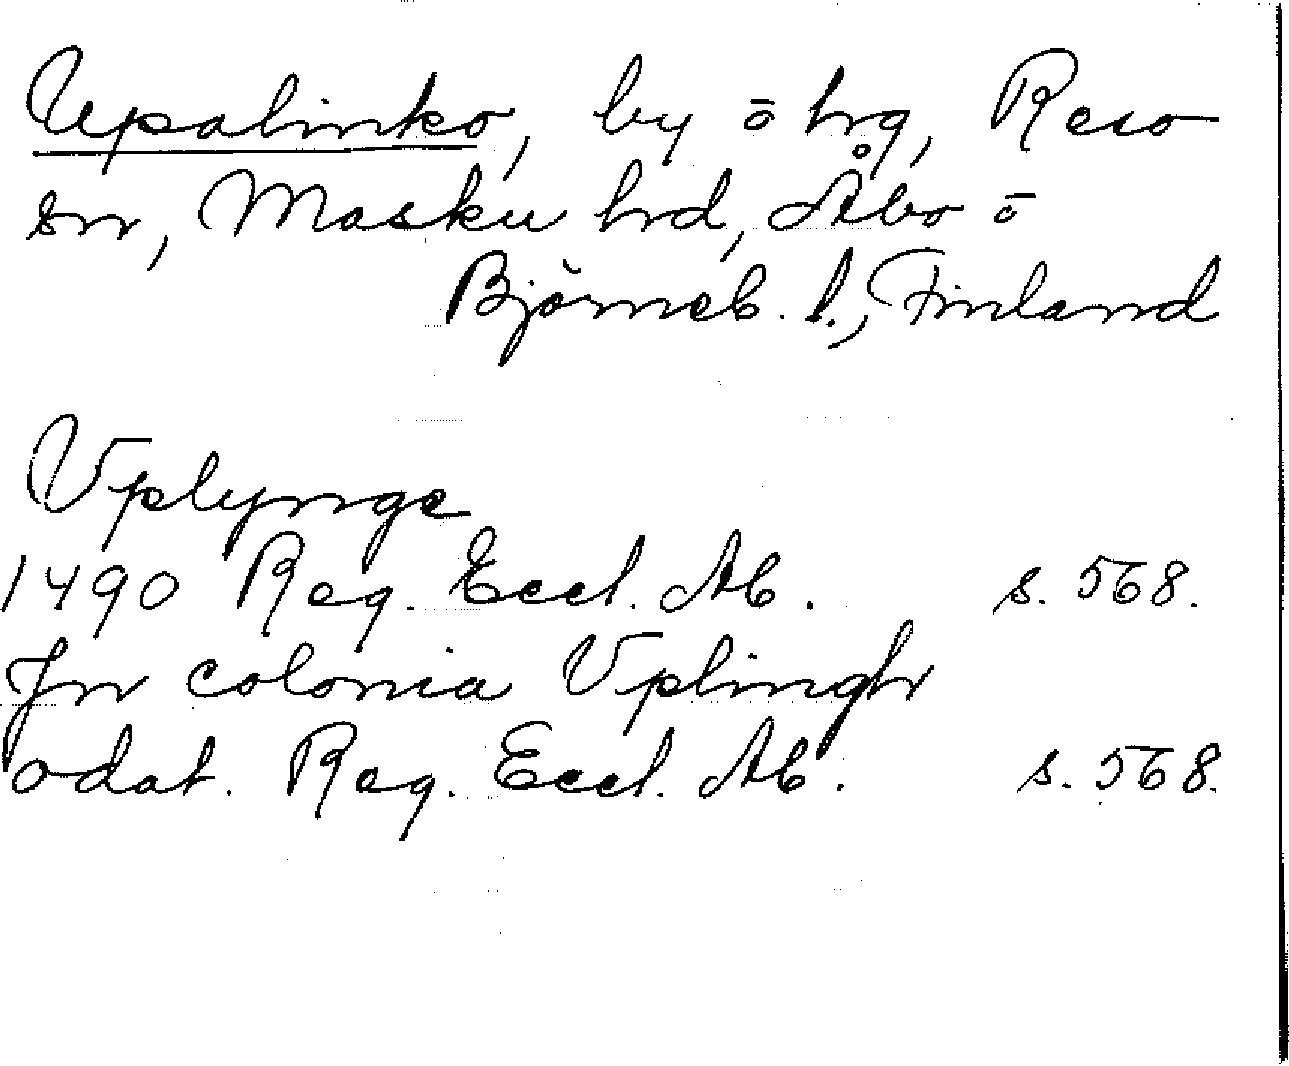 Upalinko, by o hrg, Reso
sn, Masku hrd, Åbo o
Björneb. l., Finland
Vplynge
1490 Reg. Eccl. Ab. s. 568.
Jn colonia Vplingh
odat. Reg. Eccl. Ab. s. 568.